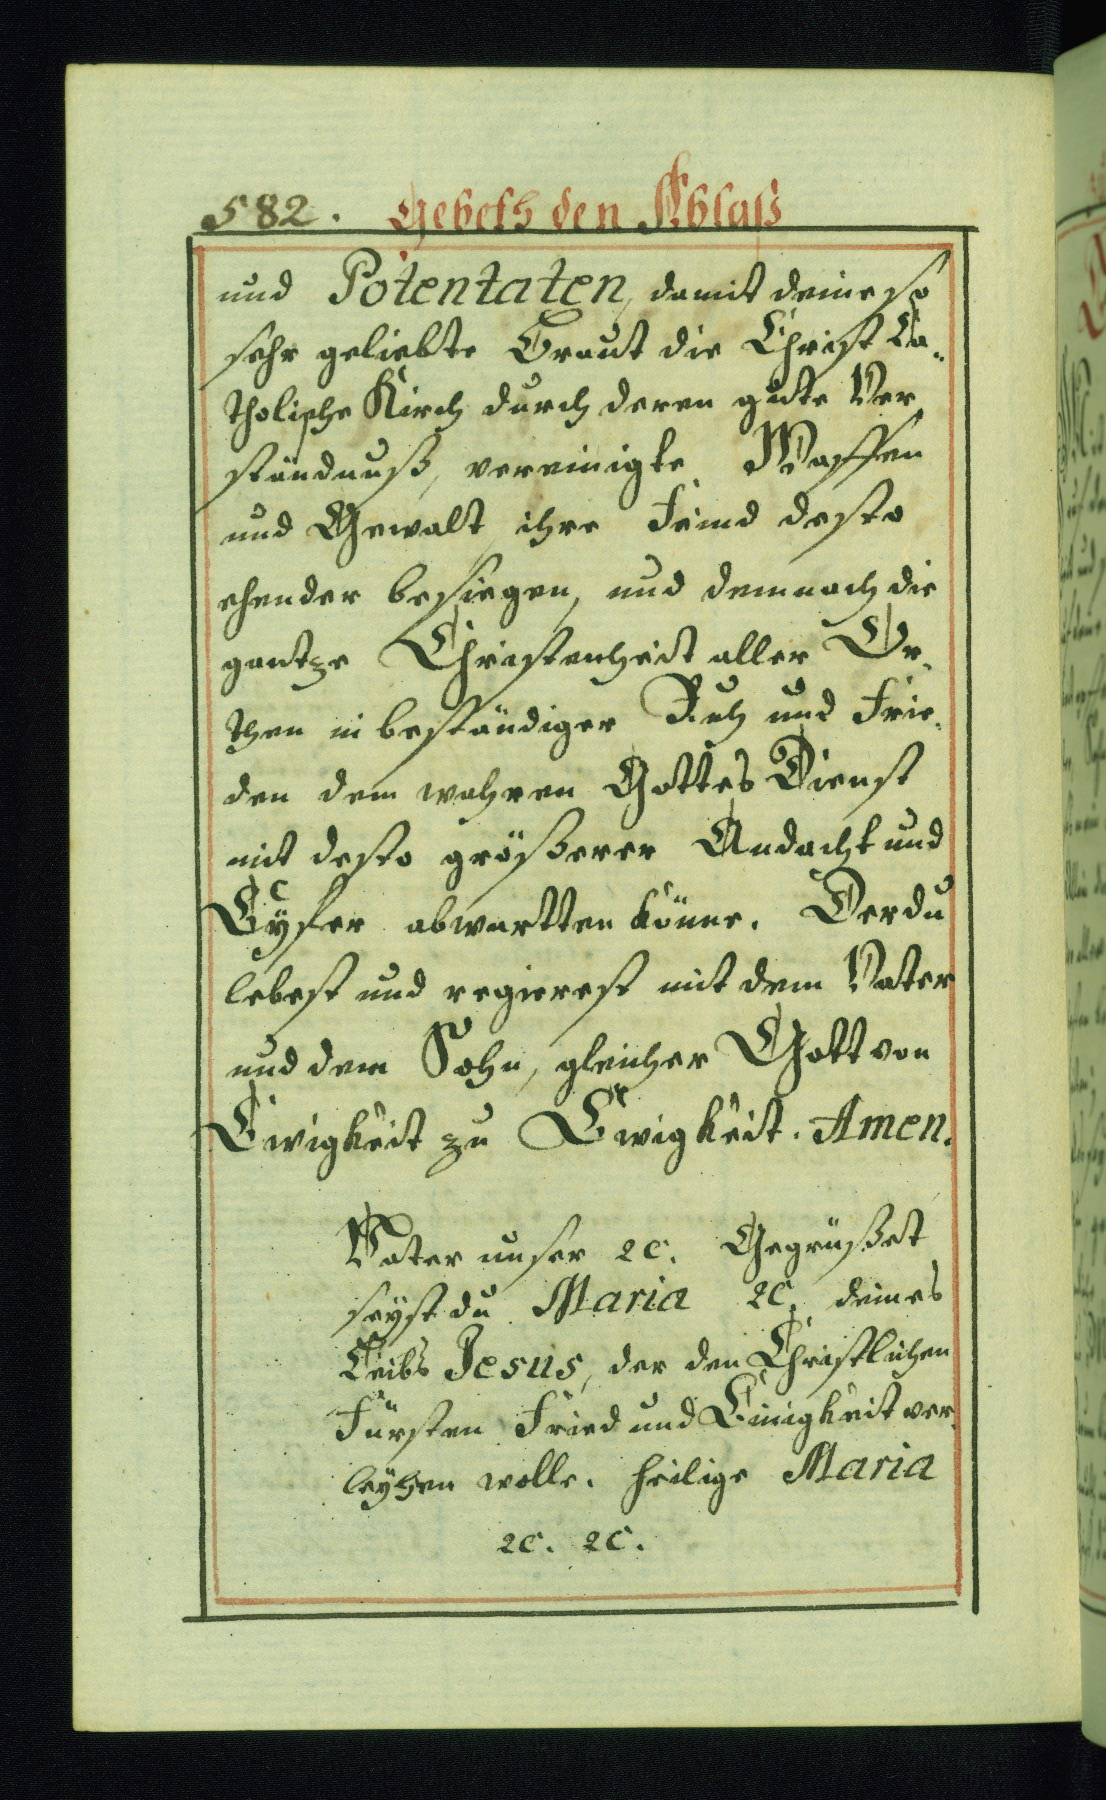 582. Gebeth den Ablaß
und Potentaten, damit deine so
sehr geliebte Braut die Christ Ca-
tholische Kirch durch deren gute Ver-
ständnuß, vereinigte Waffen
und Gewalt ihre Feind desto
ehender besiegen, und demnach die
gantze Christenheit aller Or-
then in beständiger Ruh und Frie-
den dem wahren Gottes Dienst
mit desto größerer Andacht und
Eÿfer abwartten könne. Der du
lebest und regierest mit dem Vater
und dem Sohn, gleicher Gott von
Ewigkeit zu Ewigkeit. Amen.
Vater unser ꝛc. Gegrüßet
seyst du Maria ꝛc. deines
Leibs Jesus, der den Christlichen
Fürsten Fried und Einigkeit ver-
leyhen wolle. Heilige Maria
ꝛc. ꝛc.